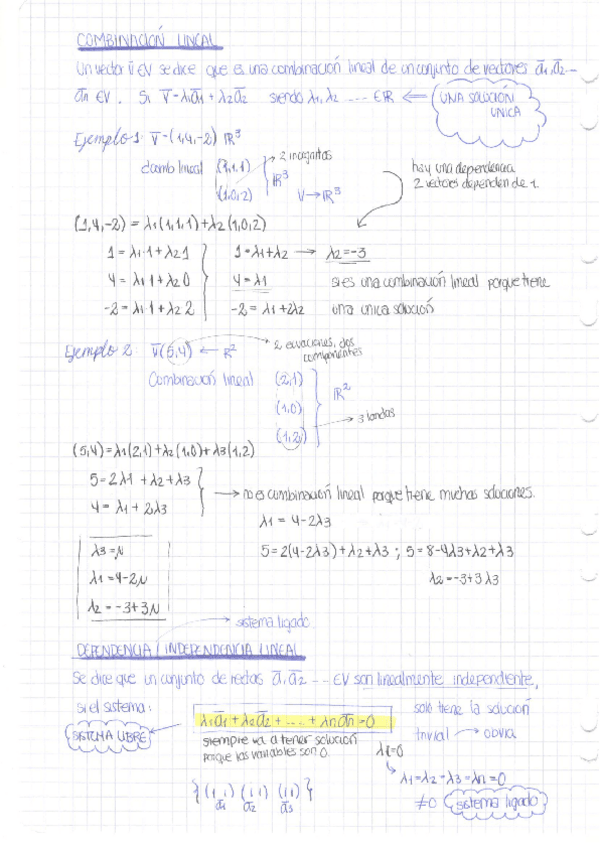 COMBINACIÓN LINEAL
Un vector v̄ ∈V se dice que es una combinación lineal de un conjunto de vectores ā₁,ā₂ ...
ān ∈V. Si v̄ = λ₁ā₁ + λ₂ā₂ siendo λ₁,λ₂ ..... ∈ℝ ⇐ UNA SOLUCIÓN
UNICA
Ejemplo 1: v̄ = (1,4,-2) ℝ³
combo lineal (1,1,1) → 2 incognitas
(1,0,2) ℝ³ V→ℝ³
hay una dependencia
2 vectores dependen de 1.
(1,4,-2) = λ₁(1,1,1)+λ₂(1,0,2)
1 = λ₁·1+λ₂1 1=λ₁+λ₂ → λ₂=-3
4 = λ₁1+λ₂0 4=λ₁ si es una combinación lineal porque tiene
-2 = λ₁1+λ₂2 -2=λ₁+2λ₂ una unica solución
Ejemplo 2: v̄(5,4) ← ℝ² → 2 ecuaciones, dos
componentes
Combinación lineal (2,1)
(1,0) ℝ²
(1,2) → 3 landas
(5,4)=λ₁(2,1)+λ₂(1,0)+λ₃(1,2)
5=2λ₁+λ₂+λ₃
→ no es combinación lineal porque tiene muchas soluciones.
4=λ₁+2λ₃
λ₁=4-2λ₃
λ₃=N 5=2(4-2λ₃)+λ₂+λ₃ ; 5=8-4λ₃+λ₂+λ₃
λ₁=4-2N λ₂=-3+3λ₃
λ₂=-3+3N
→ sistema ligado
DEPENDENCIA / INDEPENDENCIA LINEAL
Se dice que un conjunto de rectas ā₁ā₂ --- ∈V son linealmente independiente,
si el sistema: λ₁ā₁+λ₂ā₂+....+λnān=0 solo tiene la solución
SISTEMA LIBRE siempre va a tener solución trivial → obvia
porque las variables son 0. λi=0
λ₁=λ₂=λ₃=λn=0
{(1 1) (1 1) (1 1)} ≠0 sistema ligado
ā₁ ā₂ ā₃